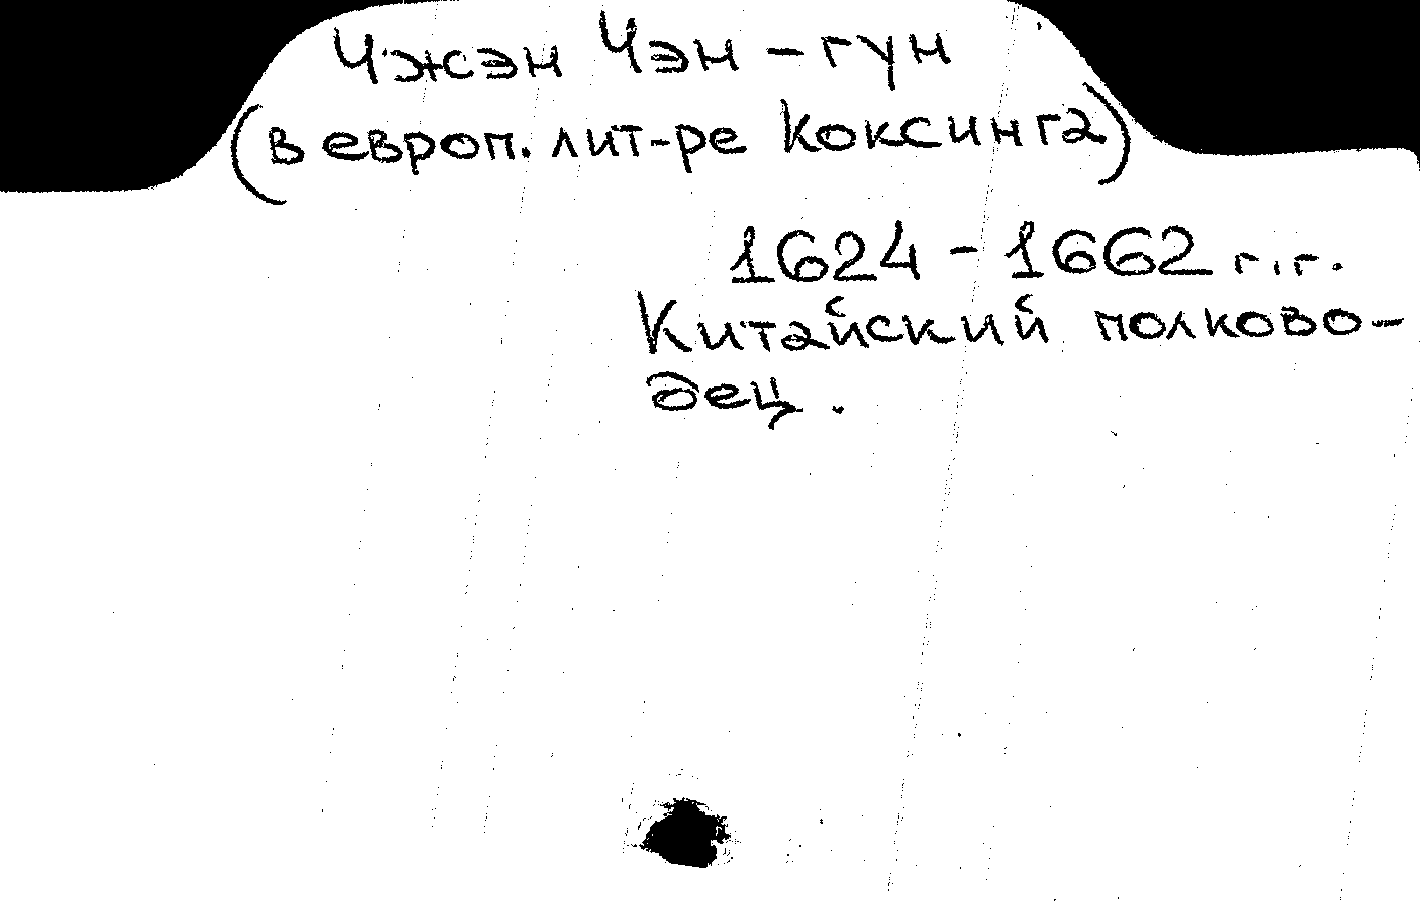 Чжэн Чэн-гун
(в европ. лит-ре Коксинга)
1624-1662 г.г.
Китайский полково-
дец.